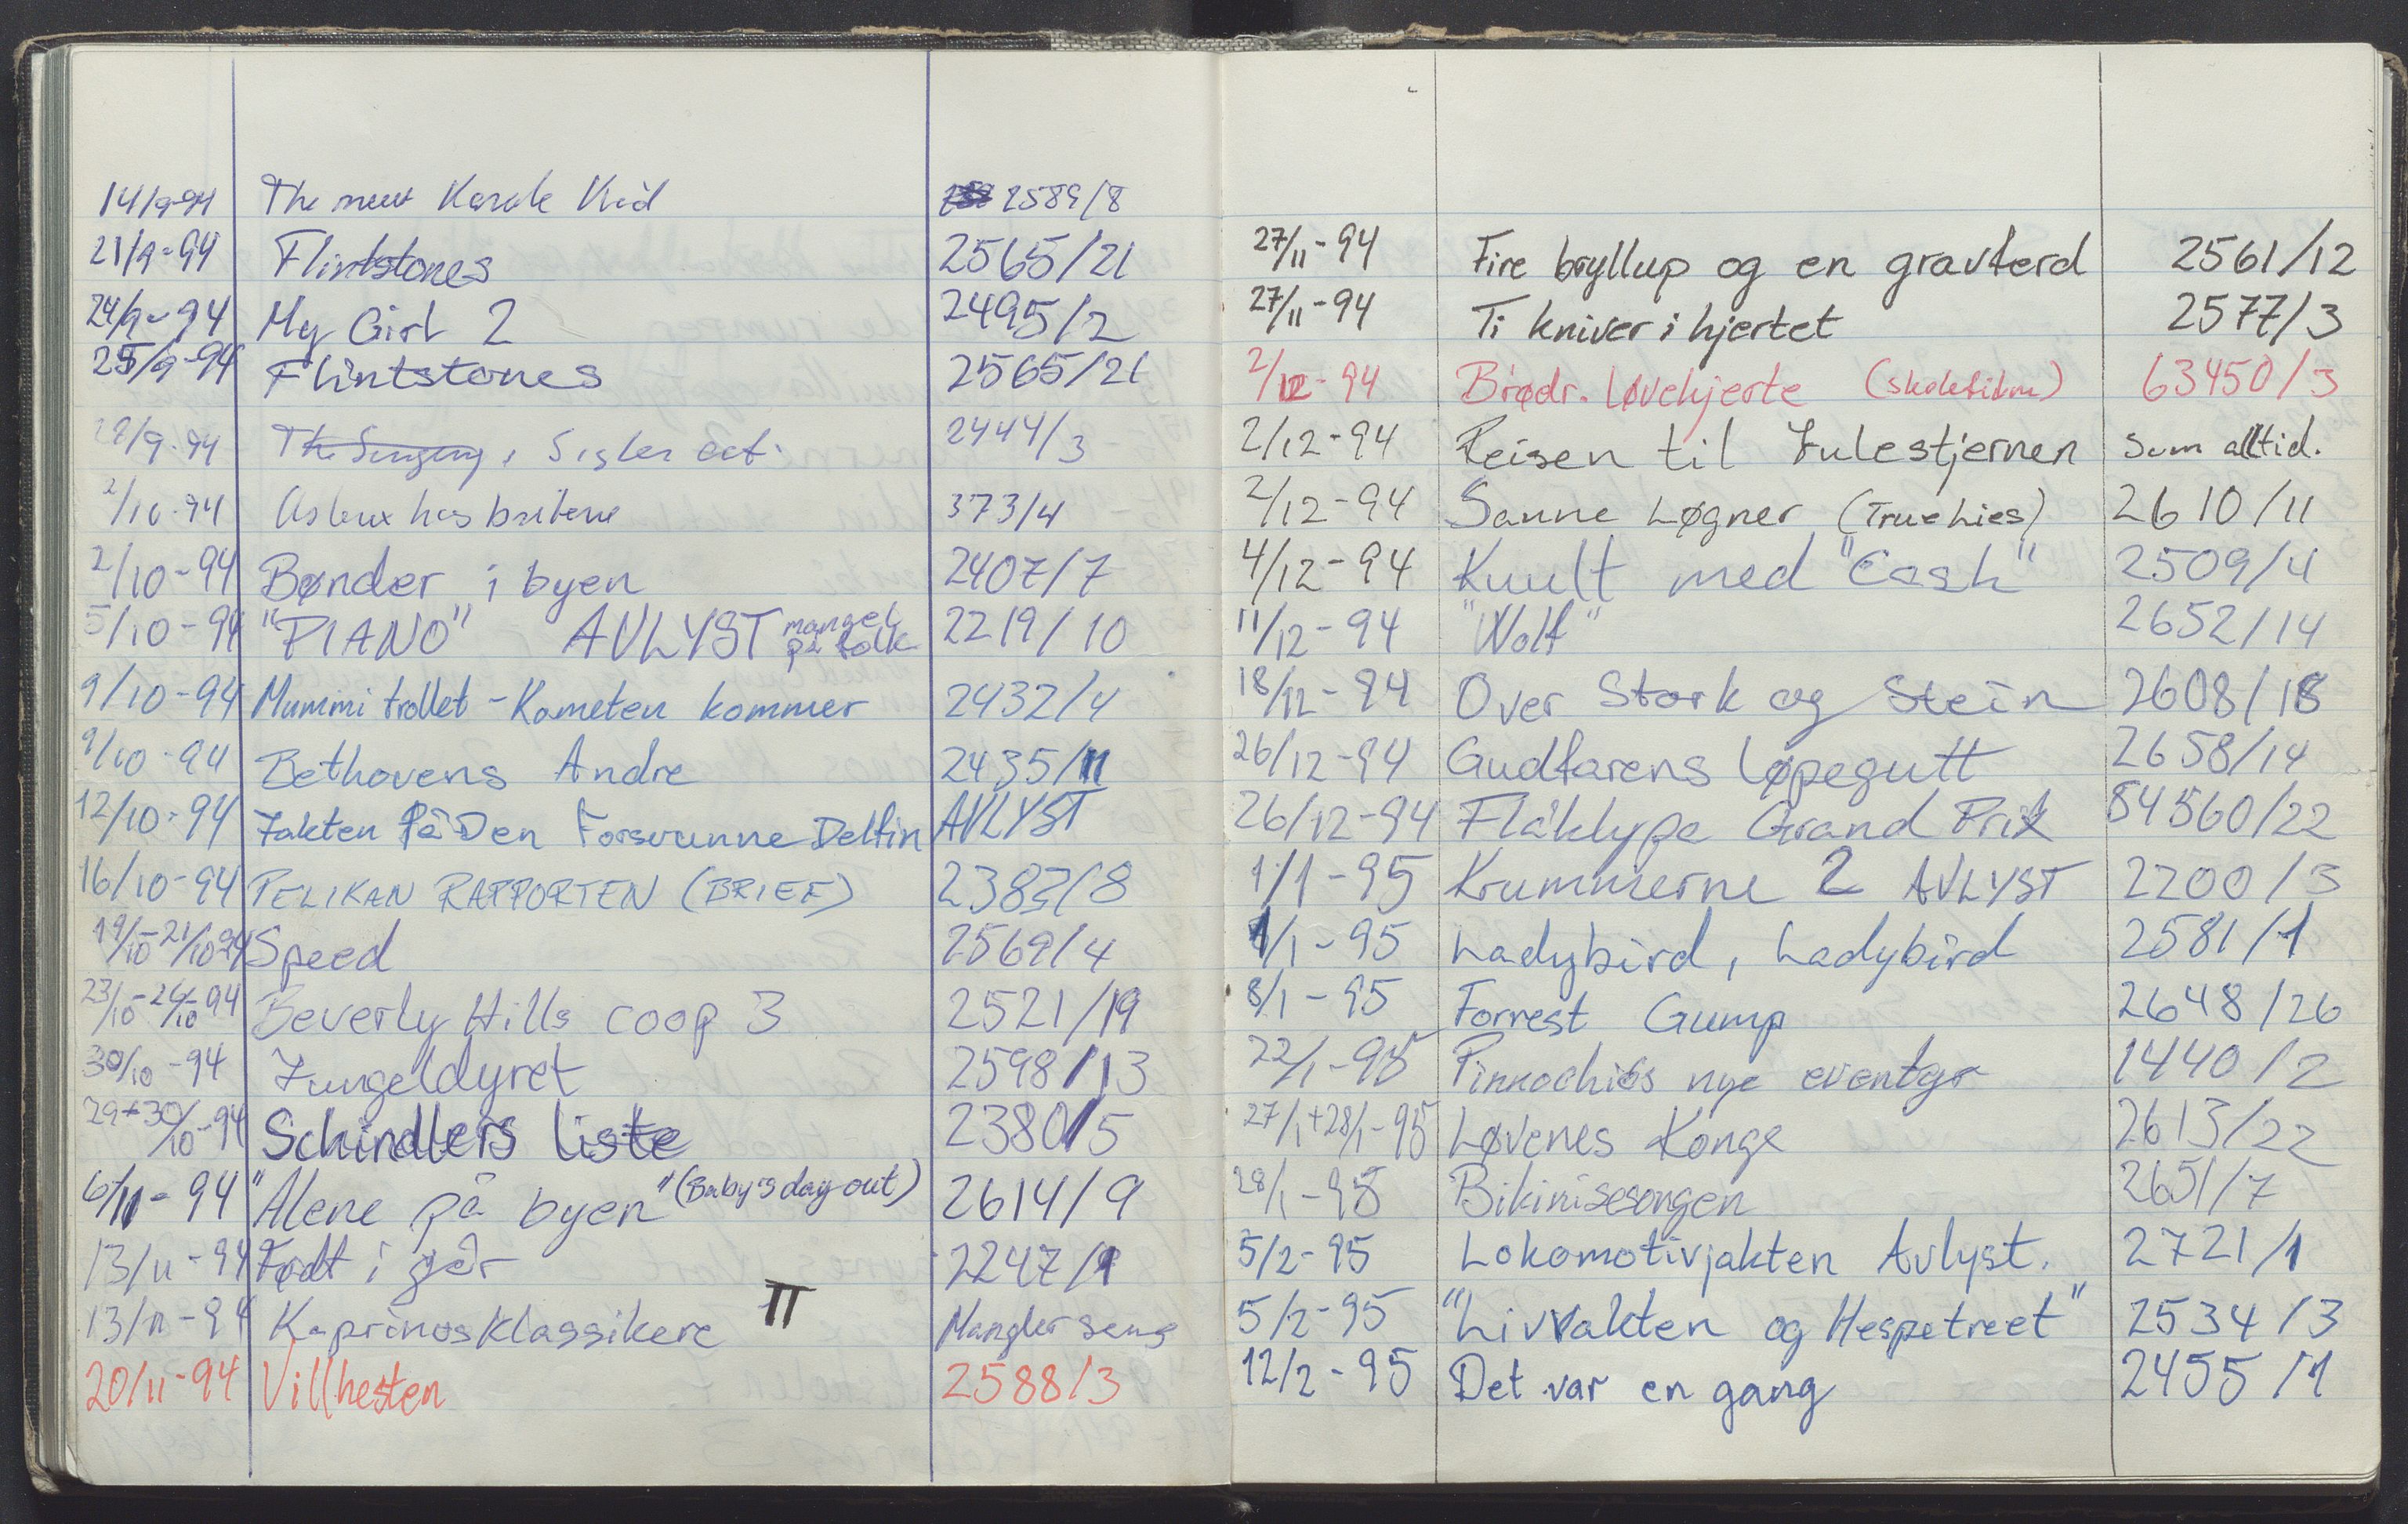 14/9-94 The next Karate Kid 2589/8
21/9-94 Flintstones 2565/21
24/9-94 My Girl 2 2495/2
25/9-94 Flintstones 2565/21
28/9-94 The Singing, Sister act. 2444/3
2/10-94 Asterix hos britene 373/4
2/10-94 Bønder i byen 2407/7
5/10-94 "PIANO" AVLYST mangel på folk 2219/10
9/10-94 Mummitrollet - Kometen kommer 2432/4
9/10-94 Bethovens Andre 2435/11
12/10-94 Jakten På Den Forsvunne Delfin AVLYST
16/10-94 PELIKAN RAPPORTEN (BRIEF) 2383/8
19/10-21/10 94 Speed 2569/4
23/10-26/10-94 Beverly Hills coop 3 2521/19
30/10-94 Jungeldyret 2598/13
29+30/10-94 Schindlers liste 2380/5
6/11-94 "Alene på byen" (Baby's day out) 2614/9
13/11-94 Født i går 2247/1
13/11-94 Kaprinos Klassikere II Mangler
20/11-94 Villhesten 2588/3
27/11-94 Fire bryllup og en gravferd 2561/12
27/11-94 Ti kniver i hjertet 2577/3
2/12-94 Brødr. Løvehjerte (skolefilm) 63450/3
2/12-94 Reisen til Julestjernen som alltid.
2/12-94 Sanne Løgner (True Lies) 2610/11
4/12-94 Kuult med "Cash" 2509/4
11/12-94 "Wolf" 2652/14
18/12-94 Over Stork og Stein 2608/18
26/12-94 Gudfarens løpegutt 2658/14
26/12-94 Flåklypa Grand Prix 54560/22
1/1-95 Krummerne 2 AVLYST 2200/3
1/1-95 Ladybird, Ladybird 2581/1
8/1-95 Forrest Gump 2648/26
22/1-95 Pinnochios nye eventyr 1440/2
27/1+28/1-95 Løvenes Konge 2613/22
28/1-95 Bikinisesongen 2651/7
5/2-95 Lokomotivjakten Avlyst. 2721/1
5/2-95 "Livvakten og Hespetreet" 2534/3
12/2-95 Det var en gang 2455/1